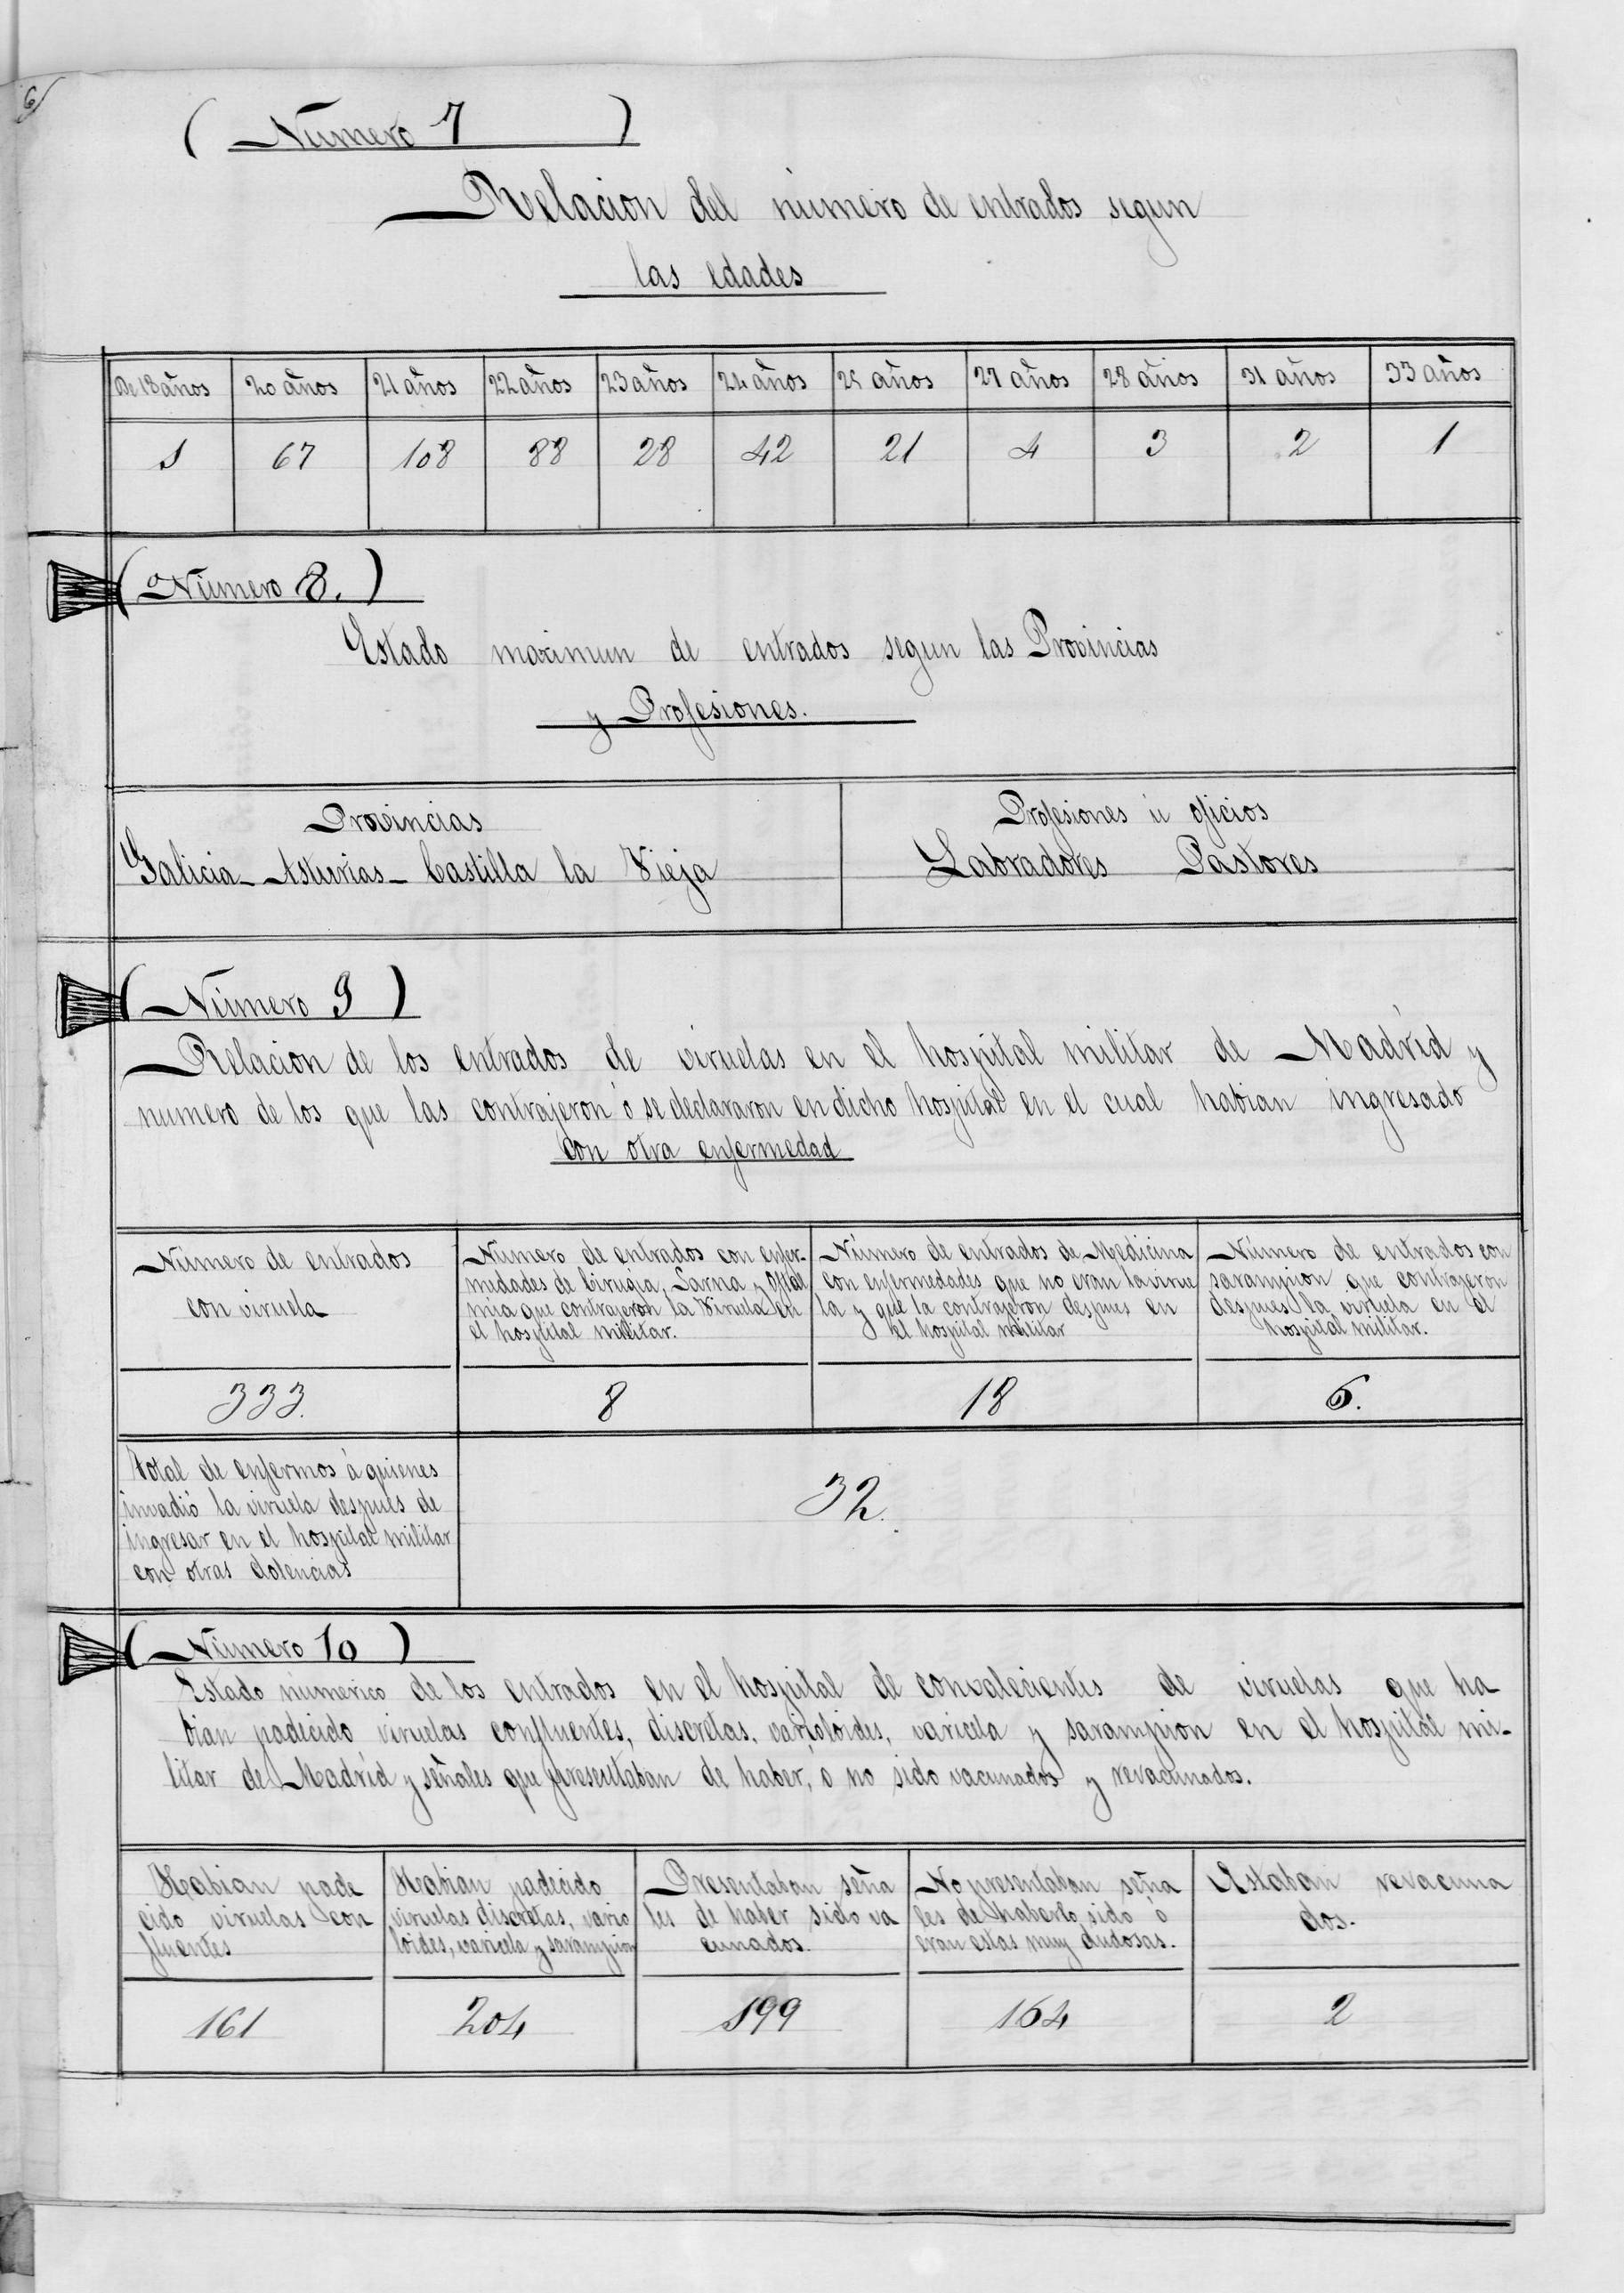 6
( Número 7 )
Relacion del número de entrados segun
las edades
De 18 años 20 años 21 años 22 años 23 años 24 años 25 años 27 años 28 años 31 años 33 años
1 67 108 88 28 42 21 4 3 2 1
( Número 8. )
Estado maximun de entrados segun las Provincias
y Profesiones.
Provincias
Galicia - Asturias - Castilla la Vieja
Profesiones ú oficios
Labradores Pastores
( Número 9 )
Relacion de los entrados de viruelas en el hospital militar de Madrid y
numero de los que las contrajeron ó se declararon en dicho hospital en el cual habian ingresado
con otra enfermedad
Número de entrados
con viruela
Número de entrados con enfer-
medades de Cirugia, Sarna y Oftal
mia que contrajeron la Viruela en
el hospital militar.
Número de entrados de Medicina
con enfermedades que no eran la virue
la y que la contrajeron despues en
el hospital militar
Número de entrados con
sarampion que contrajeron
despues la viruela en el
hospital militar.
333. 8 18 6.
Total de enfermos á quienes
invadió la viruela después de
ingresar en el hospital militar
con otras dolencias
32.
( Número 10 )
Estado númerico de los entrados en el hospital de convalecientes de viruelas que ha
bian padecido viruelas confluentes, discretas, varioloides, varicela y sarampion en el hospital mi-
litar de Madrid y señales que presentaban de haber, o no sido vacunados y revacunados.
Habian pade
cido viruelas con
fluentes
Habian padecido
viruelas discretas, vario
loides, varicela y sarampion
Presentaban seña
les de haber sido va
cunados.
No presentaban seña
les de haberlo sido ó
eran estas muy dudosas.
Estaban revacuna
dos.
161 204 199 164 2